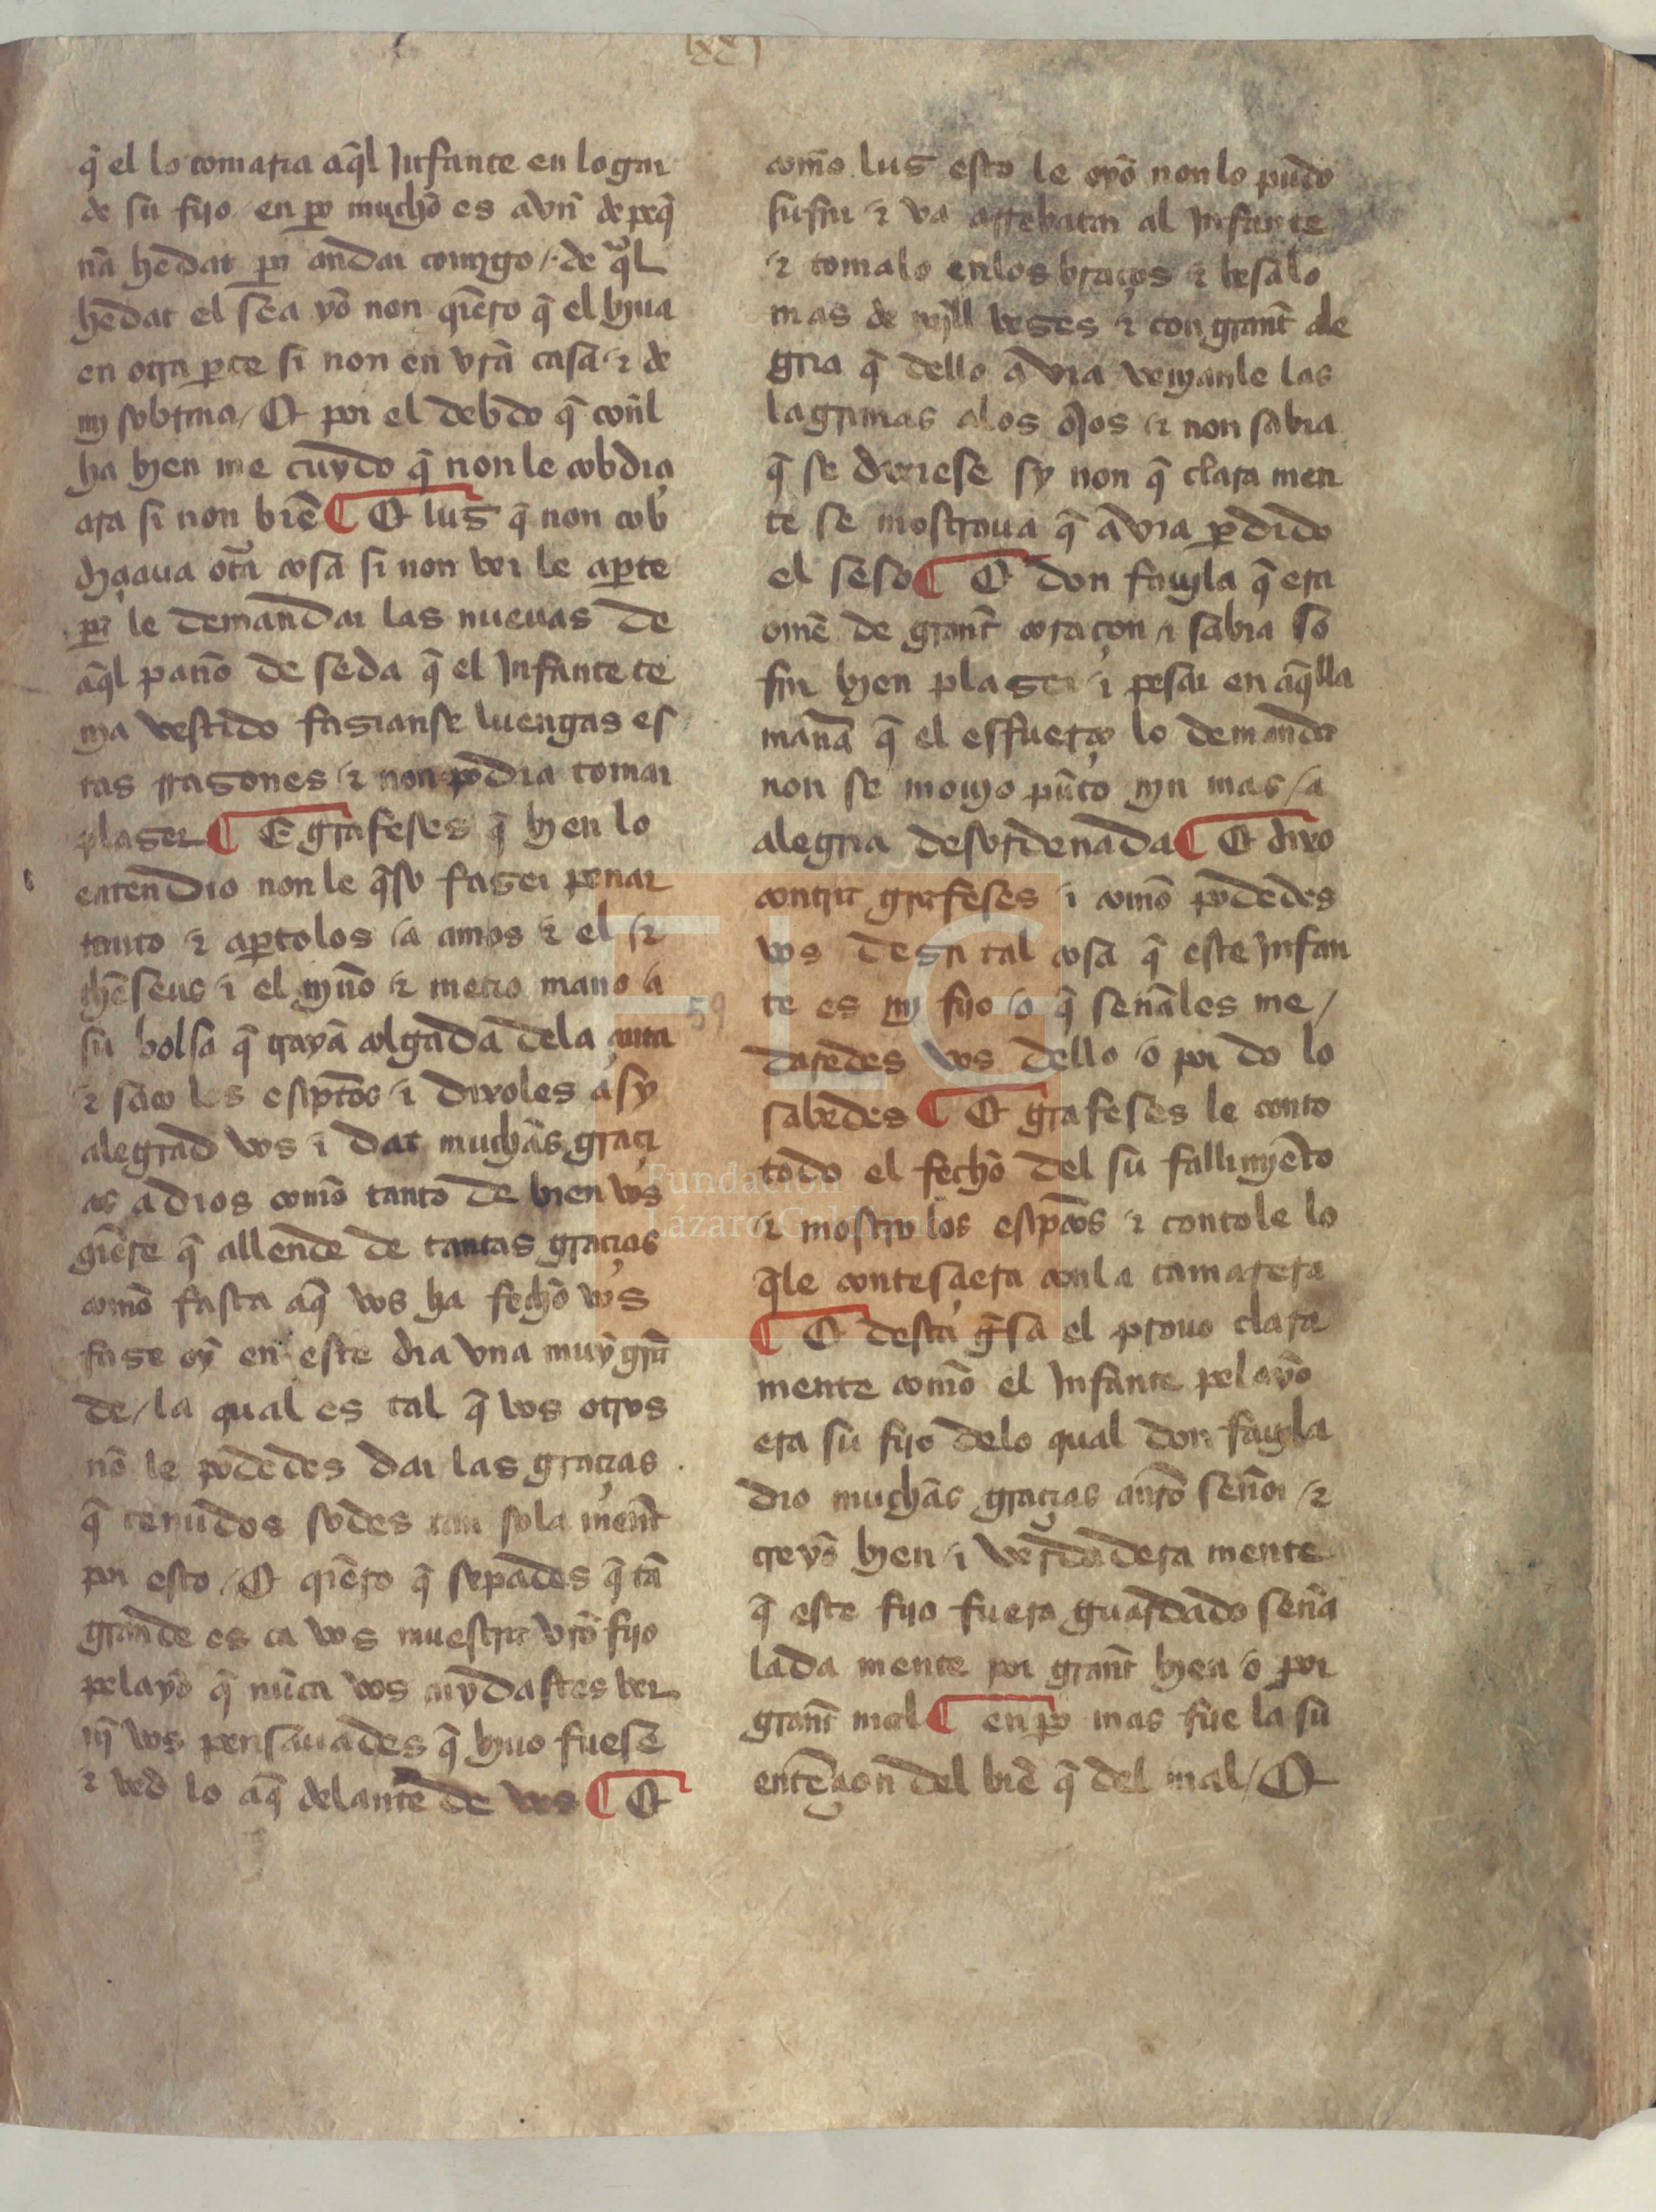 lxxj
q̃ el lo tomaria aq̃l Jnfante en logar
de su fijo / en ꝑo mucho es avñ de peq̃
ña hedat pa andar comigo / de q̃l
hedat el sea yo non quiẽro q̃ el biua
en otra ꝑte si non en vrã casa ⁊ de
mj sobrina / Et por el debdo q̃ coñl
ha bien me cuydo q̃ non le cobdiçi
ara si non biẽ ¶ Et lus q̃ non cob
diçiaua otã cosa si non ver le aꝑte
pa le demandar las nueuas de
aq̃l paño de seda q̃ el Jnfante te
nia vestido fasianse luengas es
tas rrasones ⁊ non podia tomar
plaser ¶ E grafeses q̃ bien lo
entendio non le q̃so faser penar
tanto ⁊ aꝑtolos a amos ⁊ el ⁊
el niño ⁊ metio mano a
su bolsa q̃ traya colgada dela çinta
⁊ saco los escriptos ⁊ dixoles asy
alegrad vos ⁊ dat muchas graçi
as a dios como tanto de bien vos
quiẽre q̃ allende de tantas graçias
como fasta aq̃ vos ha fecho vos
fase oy en este dia vna muy grañ
de / la qual es tal q̃ vos otros
nõ le podedes dar las graçias
q̃ tenudos sodes tan sola ment
por esto / Et quiẽro q̃ sepades q̃ tã
grande es ca vos muestra vrõ fijo
pelayo q̃ nũca vos cuydastes ver
nj̃ vos pensauades q̃ biuo fuese
⁊ ved lo aq̃ delante de vos ¶ Et
como lus esto le oyo non lo pudo
sufrir ⁊ va arrebatar al Jnfante
⁊ tomalo enlos braços ⁊ besalo
mas de mjll veses ⁊ con grant ale
gria q̃ dello avia venianle las
lagrimas alos ojos ⁊ non sabia
q̃ se dixiese sy non q̃ clara men
te se mostraua q̃ avia ꝑdido
el seso ¶ Et don fauila q̃ era
omẽ de grant coraçon ⁊ sabia so
frir bien plaser ⁊ pesar en aq̃lla
manã q̃ el esfuerço lo demanda
non se mouio pũto njn mas / a
alegria desordenada ¶ Et dixo
contra grafeses ⁊ como podedes
vos desir tal cosa q̃ este Jnfan
te es mj fijo o q̃ señales me /
daredes vos dello o por do lo
sabedes ¶ Et grafeses le conto
todo el fecho del su fallimyẽto
⁊ mostro los escriptos ⁊ contole lo
q̃le contesçiera conla camarera
¶ Et desta g̃sa el prouo clara
mente como el Jnfante pelayo
era su fijo delo qual don fauila
dio muchas graçias a nrõ señor ⁊
creyo bien ⁊ verdadera mente
q̃ este fijo fuera guardado seña
lada mente por grant bien o por
grant mal ¶ en ꝑo mas fue la su
entẽçion del biẽ q̃ del mal / Et
59
FLG
Fundación
Lázaro Galdiano